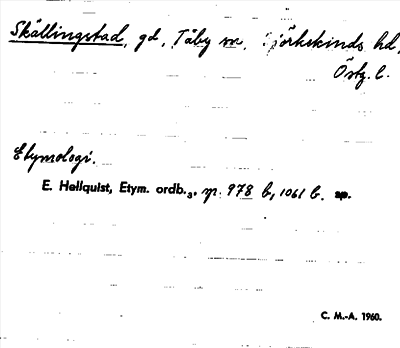 Skällingstad, gd, Täby sn, Björkekinds hd,
Östg. l.
Etymologi.
E. Hellquist, Etym. ordb.3, sp. 978 b, 1061 b.
C. M.-A. 1960.